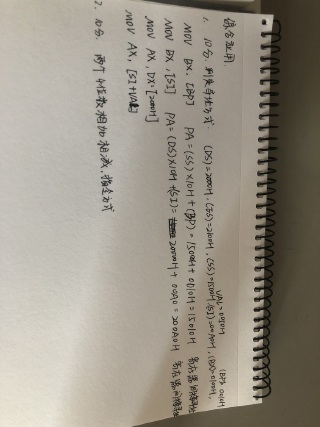 综合应用
1. 10分. 判定寻址方式. (DS)=2000H, (ES)=2100H, (SS)=1500H, (SI)=00A0H, (BX)=0100H,
(BP)=0010H
VAL=0050H
MOV BX, [BP] PA=(SS)×10H+(BP)=15000H+0010H=15010H 寄存器间接寻址
MOV BX, [SI] PA=(DS)×10H+(SI)=20000H+00A0=200A0H 寄存器间接寻址
MOV AX, DX=[2000H]
MOV AX, [SI+VAL]
2. 10分. 两个 数相加相减. 指令方式